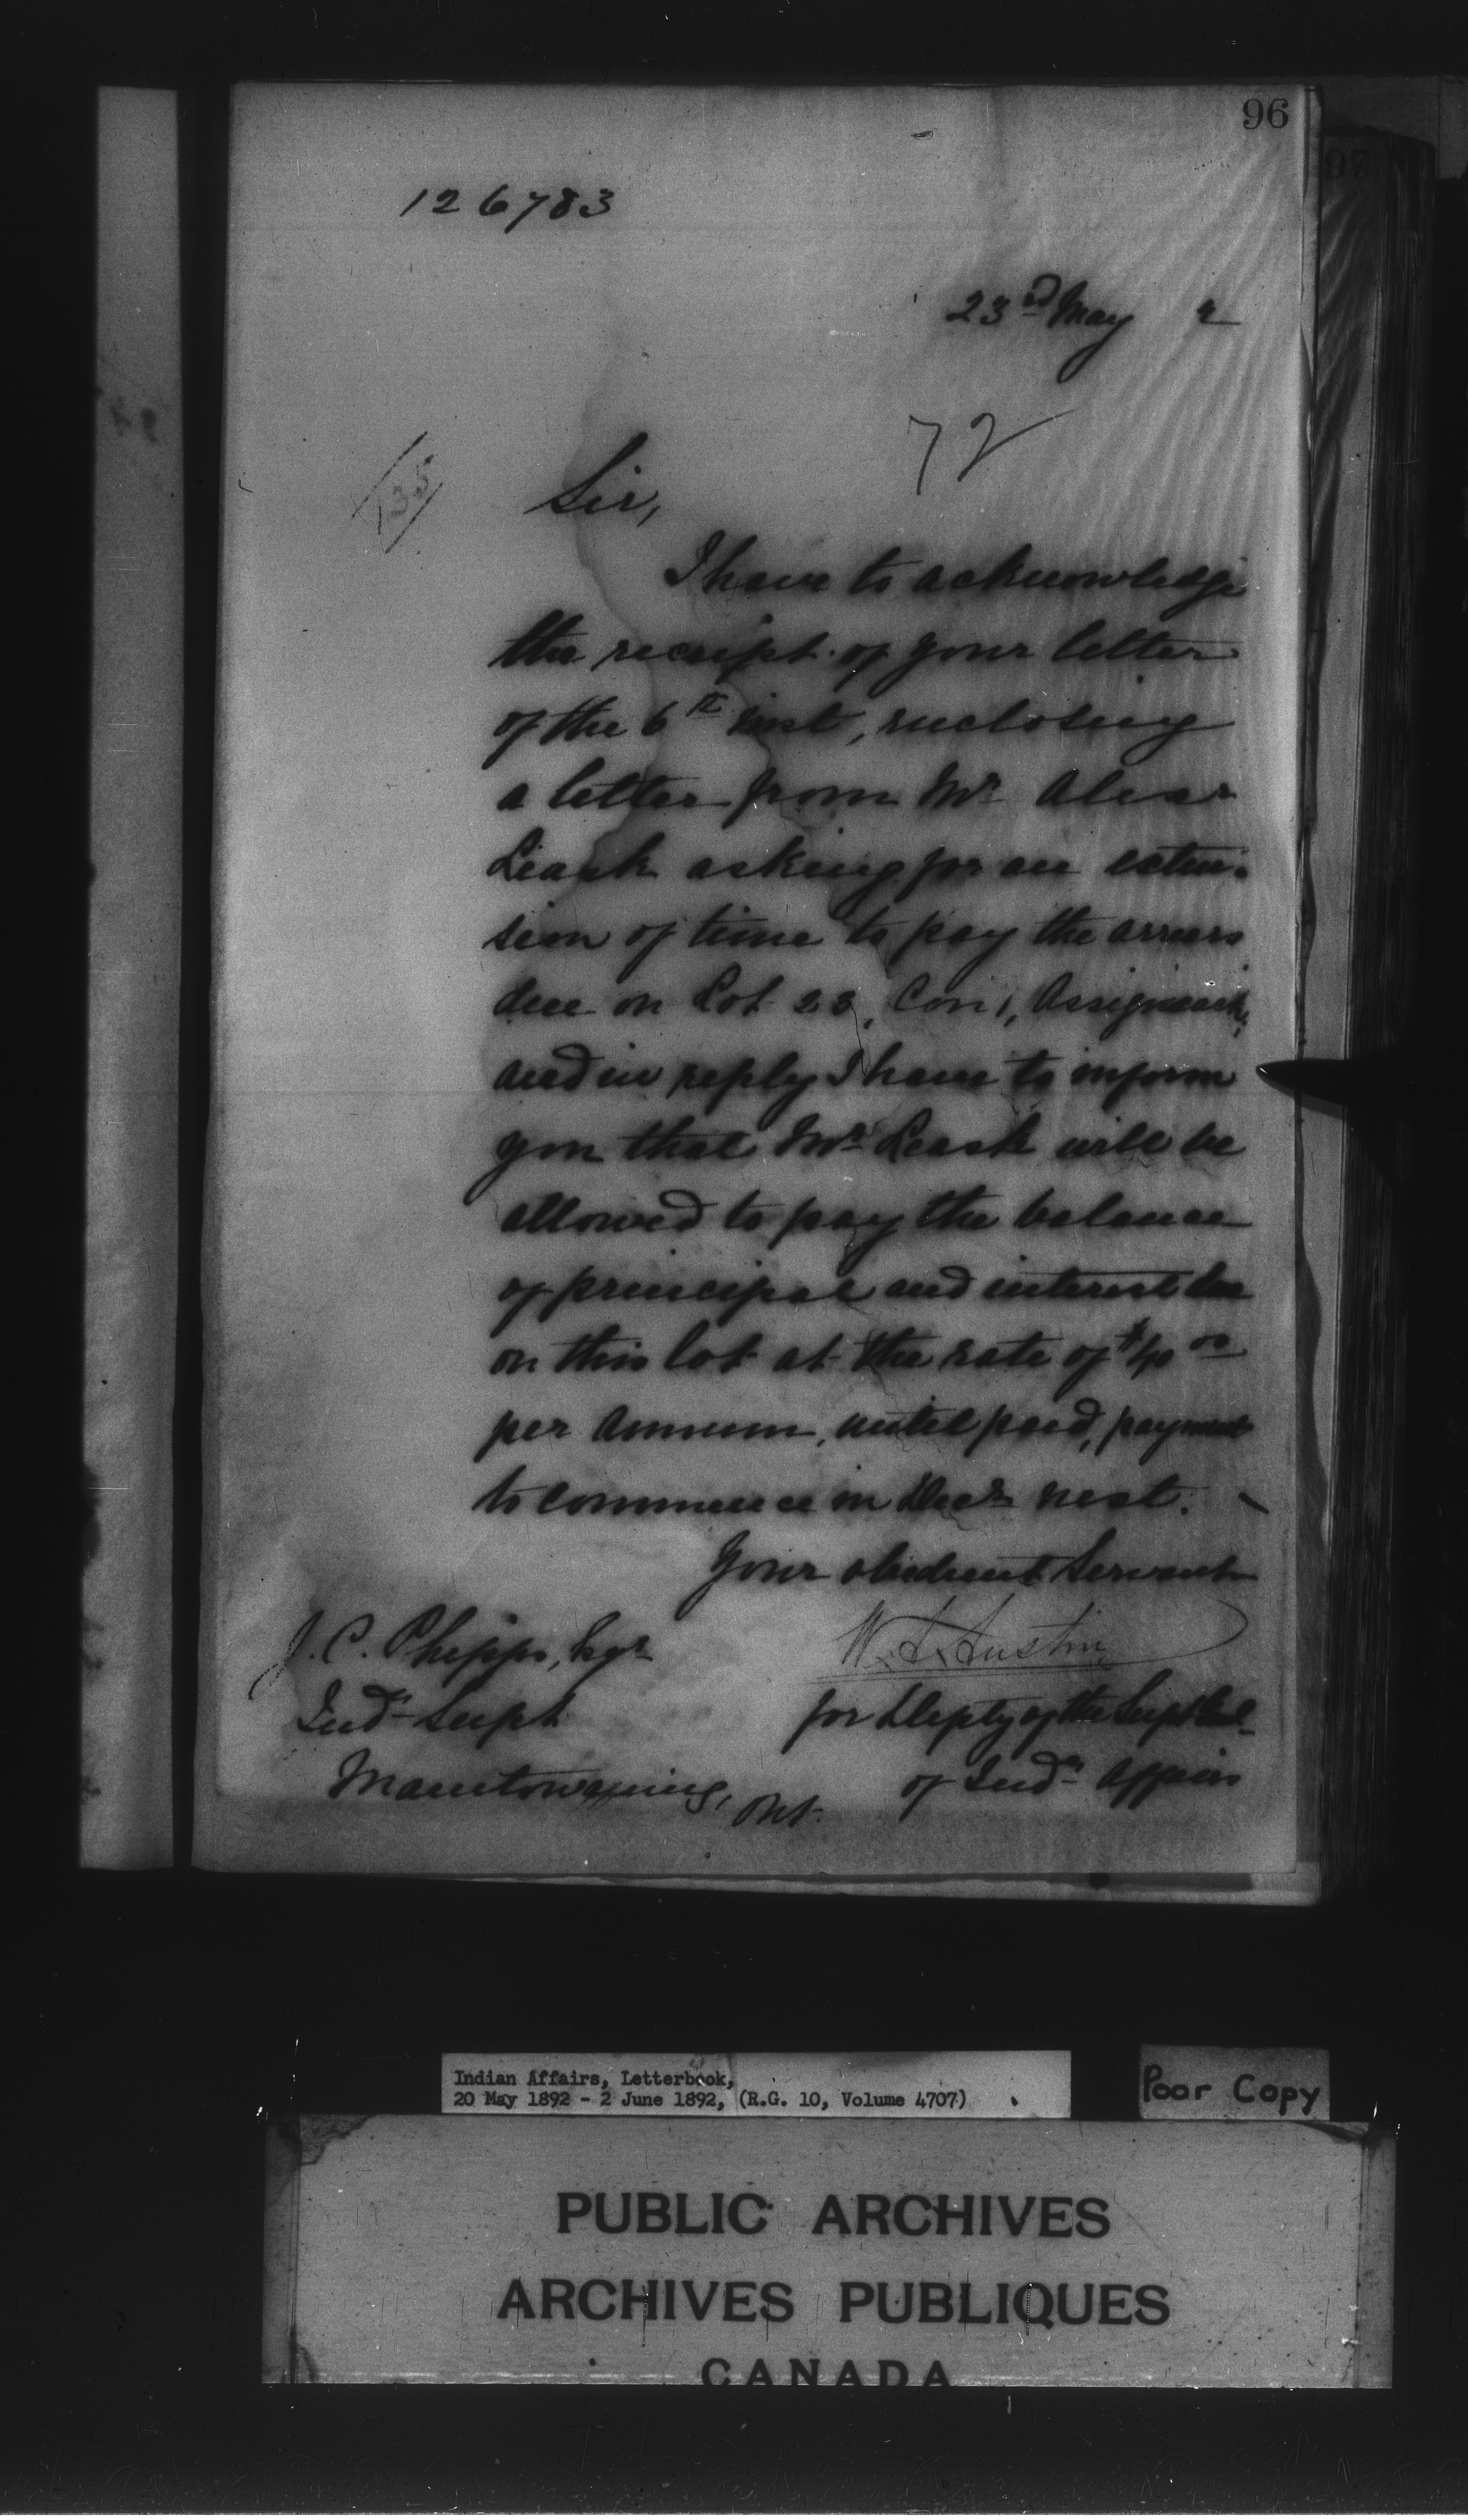 96
97
126783
23rd May 2
72
135
Sir,
I have to acknowledge
the receipt of your letter
of the 6th inst, enclosing
a letter from Mr Alexr
Leask asking for an exten-
sion of time to pay the arrears
due on Lot 23, Con 1, Assiginack,
and in reply I have to inform
you that Mr Leask will be
allowed to pay the balance
of principal and interest due
on this lot at the rate of $40 00
per annum, until paid, payment
to commence in Decr next.
Your obedient Servant
W. A. Austin
J. C. Phipps, Esqr
for Depty of the Supt Genl
Indn Supt
of Indn Affairs
Manitowaning, Ont.
Indian Affairs, Letterbook,
20 May 1892 - 2 June 1892, (R.G. 10, Volume 4707)
Poor Copy
PUBLIC ARCHIVES
ARCHIVES PUBLIQUES
CANADA